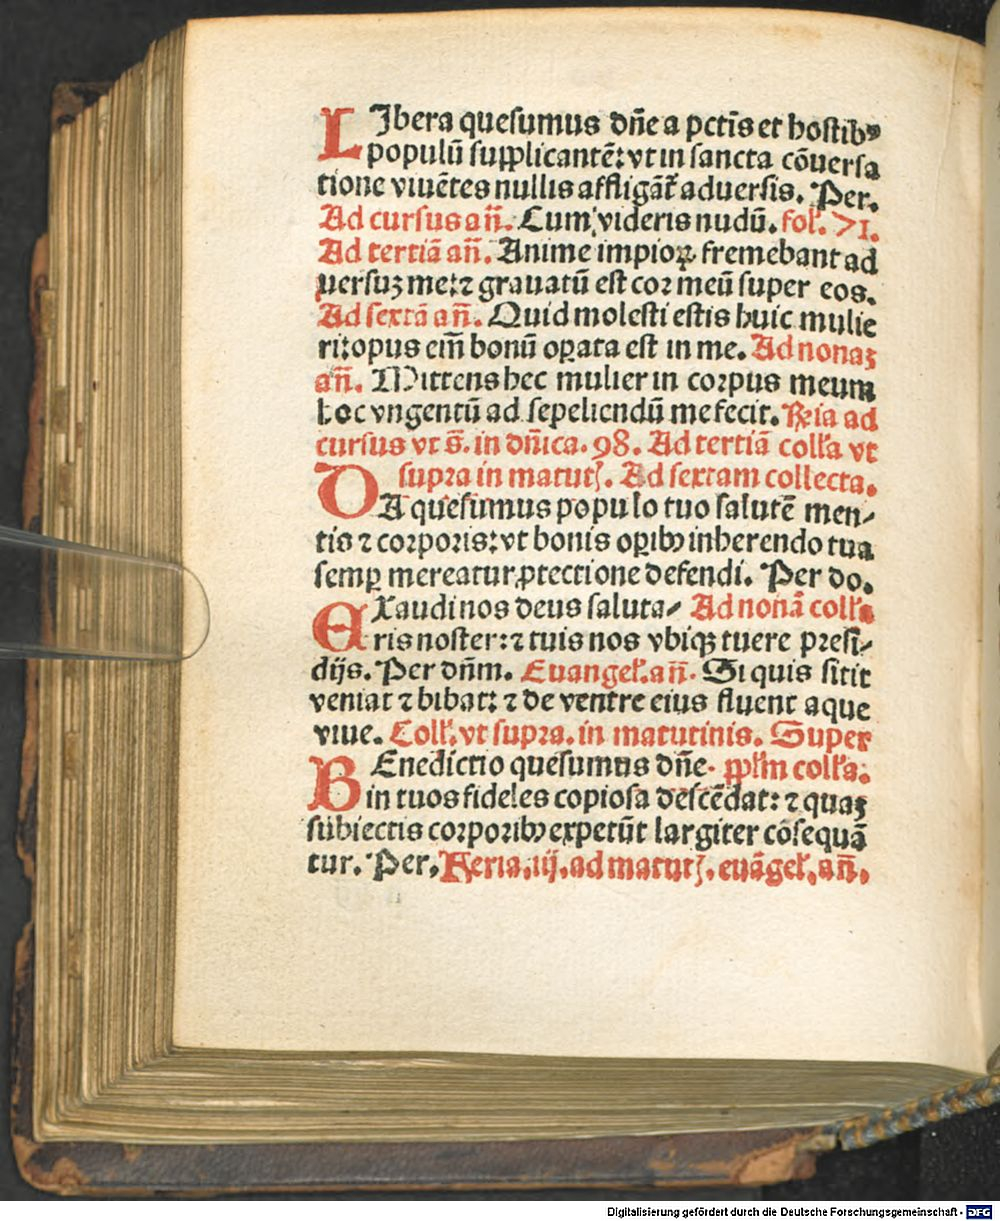 LIbera quesumus dñe a pctīs et hostibꝰ
populū supplicantē: vt in sancta cōuersa
tione viuētes nullis affligāt᷑ aduersis. Per.
Ad cursus añ. Cum videris nudū. fol. 71.
Ad tertiā añ. Anime impioꝝ fremebant ad
uersuꝫ me: ⁊ grauatū est cor meū super eos.
Ad sextā añ. Quid molesti estis huic mulie
ri: opus em̄ bonū oꝑata est in me. Ad nonaꝫ
añ. Mittens hec mulier in corpus meum
hoc vngentū ad sepeliendū me fecit. R̄ia ad
cursus vt s̄. in dn̄ica. 98. Ad tertiā coll'a vt
supra in matutꝭ. Ad sextam collecta.
DA quesumus populo tuo salutē men-
tis ⁊ corporis: vt bonis oꝑibꝰ inherendo tua
semꝑ mereatur ꝓtectione defendi. Per do.
EXaudi nos deus saluta- Ad nonā coll'a
ris noster: ⁊ tuis nos vbiqꝫ tuere presi-
dijs. Per dn̄m. Euangel'. añ. Si quis sitit
veniat ⁊ bibat: ⁊ de ventre eius fluent aque
viue. Coll'. vt supra. in matutinis. Super
BEnedictio quesumus dñe. ppl'm coll'a.
in tuos fideles copiosa descēdat: ⁊ quaꝫ
subiectis corporibꝰ expetūt largiter cōsequā
tur. Per. Feria. iij. ad matutꝭ. euāgel'. añ.
Digitalisierung gefördert durch die Deutsche Forschungsgemeinschaft - DFG